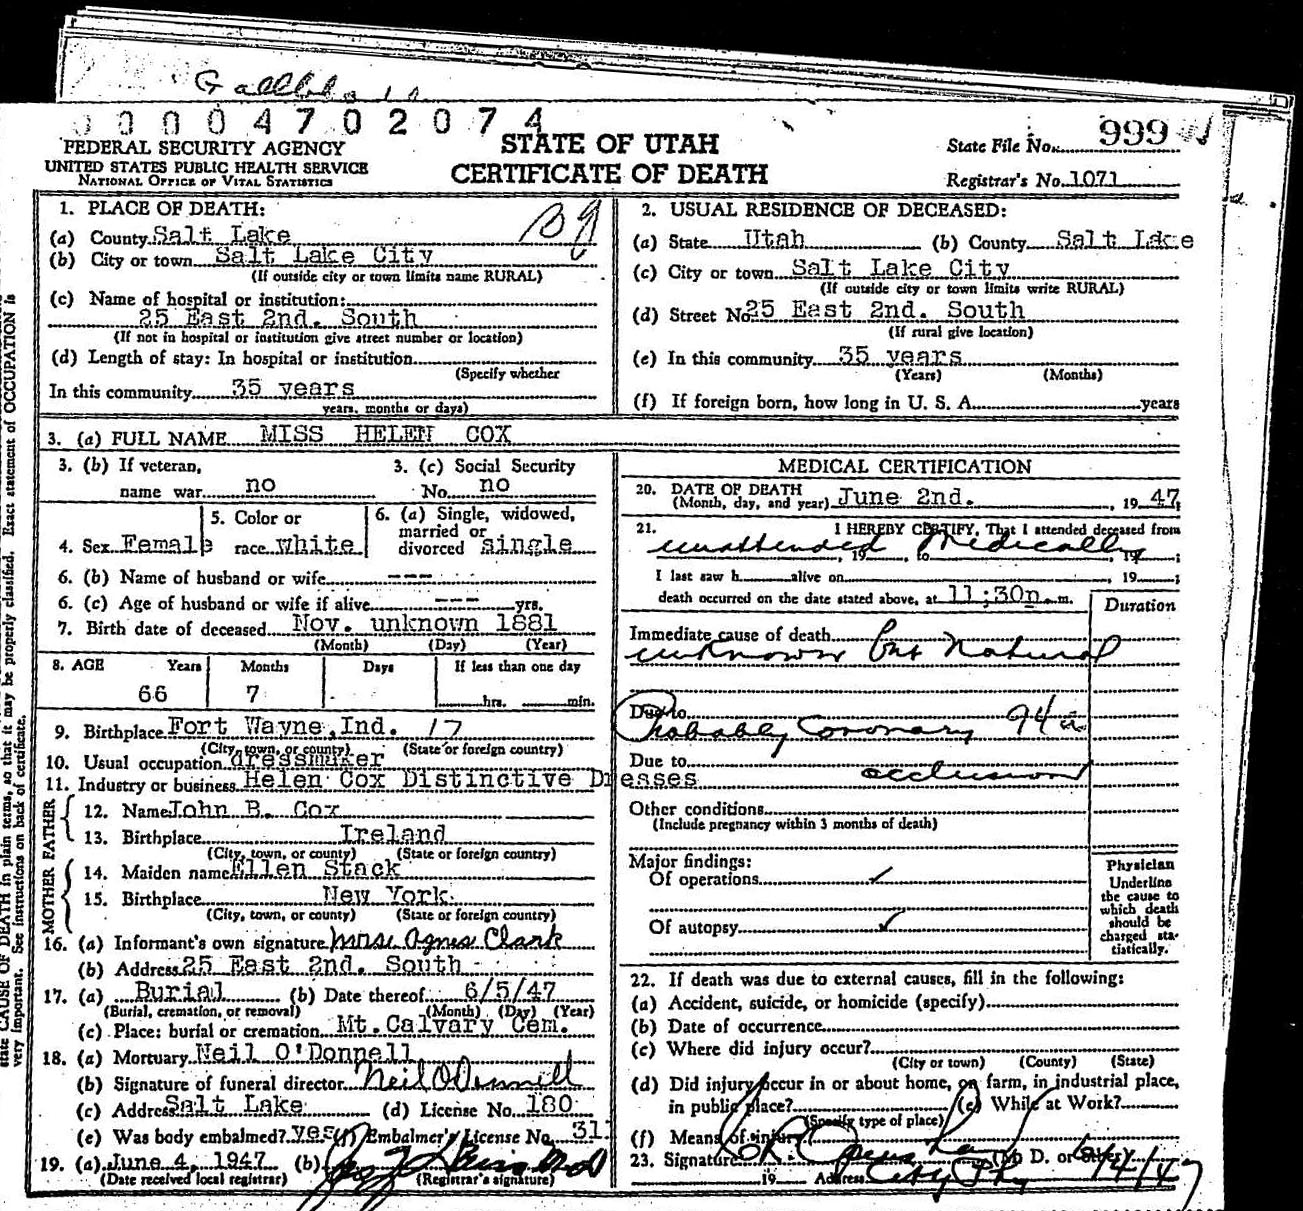 Gallbla
0 0 0 0 4 7 0 2 0 7 4
FEDERAL SECURITY AGENCY
UNITED STATES PUBLIC HEALTH SERVICE
NATIONAL OFFICE OF VITAL STATISTICS
STATE OF UTAH
CERTIFICATE OF DEATH
State File No. 999
Registrar's No. 1071
state CAUSE OF DEATH in plain terms, so that it may be properly classified. Exact statement of OCCUPATION is
very important. See instructions on back of certificate.
1. PLACE OF DEATH:
(a) County Salt Lake
(b) City or town Salt Lake City
(If outside city or town limits name RURAL)
(c) Name of hospital or institution:
25 East 2nd. South
(If not in hospital or institution give street number or location)
(d) Length of stay: In hospital or institution
(Specify whether
In this community 35 years
years, months or days)
2. USUAL RESIDENCE OF DECEASED:
(a) State Utah (b) County Salt Lake
(c) City or town Salt Lake City
(If outside city or town limits write RURAL)
(d) Street No. 25 East 2nd. South
(If rural give location)
(e) In this community 35 years
(Years) (Months)
(f) If foreign born, how long in U. S. A. years
3. (a) FULL NAME MISS HELEN COX
3. (b) If veteran,
name war no
3. (c) Social Security
No. no
4. Sex Female
5. Color or
race white
6. (a) Single, widowed,
married or
divorced single
6. (b) Name of husband or wife ---
6. (c) Age of husband or wife if alive --- yrs.
7. Birth date of deceased Nov. unknown 1881
(Month) (Day) (Year)
8. AGE Years Months Days If less than one day
66 7 hrs. min.
9. Birthplace Fort Wayne, Ind. 17
(City, town, or county) (State or foreign country)
10. Usual occupation dressmaker
11. Industry or business Helen Cox Distinctive Dresses
FATHER
12. Name John B. Cox
13. Birthplace Ireland
(City, town, or county) (State or foreign country)
MOTHER
14. Maiden name Ellen Stack
15. Birthplace New York.
(City, town, or county) (State or foreign country)
16. (a) Informant's own signature Mrs. Agnes Clark
(b) Address 25 East 2nd. South
17. (a) Burial (b) Date thereof 6/5/47
(Burial, cremation, or removal) (Month) (Day) (Year)
(c) Place: burial or cremation Mt. Calvary Cem.
18. (a) Mortuary Neil O'Donnell
(b) Signature of funeral director Neil O'Donnell
(c) Address Salt Lake (d) License No. 180
(e) Was body embalmed? yes (f) Embalmer's License No. 311
19. (a) June 4, 1947 (b)
(Date received local registrar) (Registrar's signature)
MEDICAL CERTIFICATION
20. DATE OF DEATH
(Month, day, and year) June 2nd. , 19 47
21. I HEREBY CERTIFY, That I attended deceased from
unattended Medically
, 19 , to , 19 ;
I last saw h alive on , 19 ;
death occurred on the date stated above, at 11;30p. m.
Duration
Immediate cause of death
unknown but Natural
Due to
Probably Coronary 94a
Due to
occlusion
Other conditions
(Include pregnancy within 3 months of death)
Major findings:
Of operations ✓
Of autopsy ✓
Physician
Underline
the cause to
which death
should be
charged sta-
tistically.
22. If death was due to external causes, fill in the following:
(a) Accident, suicide, or homicide (specify)
(b) Date of occurrence
(c) Where did injury occur?
(City or town) (County) (State)
(d) Did injury occur in or about home, on farm, in industrial place,
in public place? (e) While at Work?
(Specify type of place)
(f) Means of injury?
23. Signature (M. D. or other) 6/4/47
19 Address City Phy